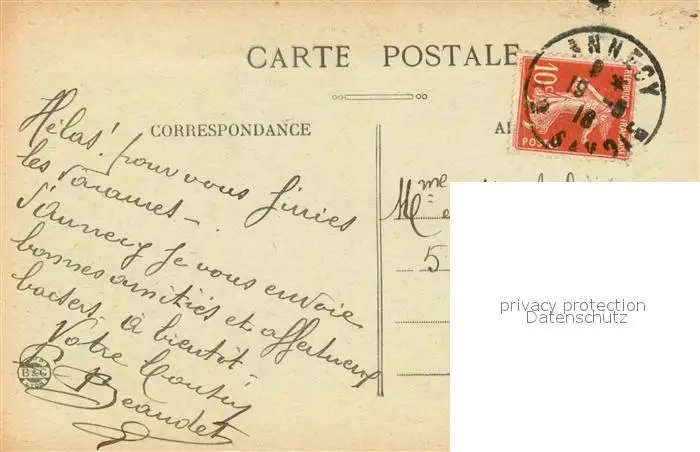 CARTE POSTALE
CORRESPONDANCE
Hélas! pour vous finies
les vacances.
d'Annecy je vous envoie
bonnes amitiés et affectueux
baisers. à bientôt.
Votre Cousin
Beaudet
B&G
ANNECY
19
18
SAVOIE
10c
REPUBLIQUE FRANÇAISE
POSTES
Mme
5
privacy protection
Datenschutz